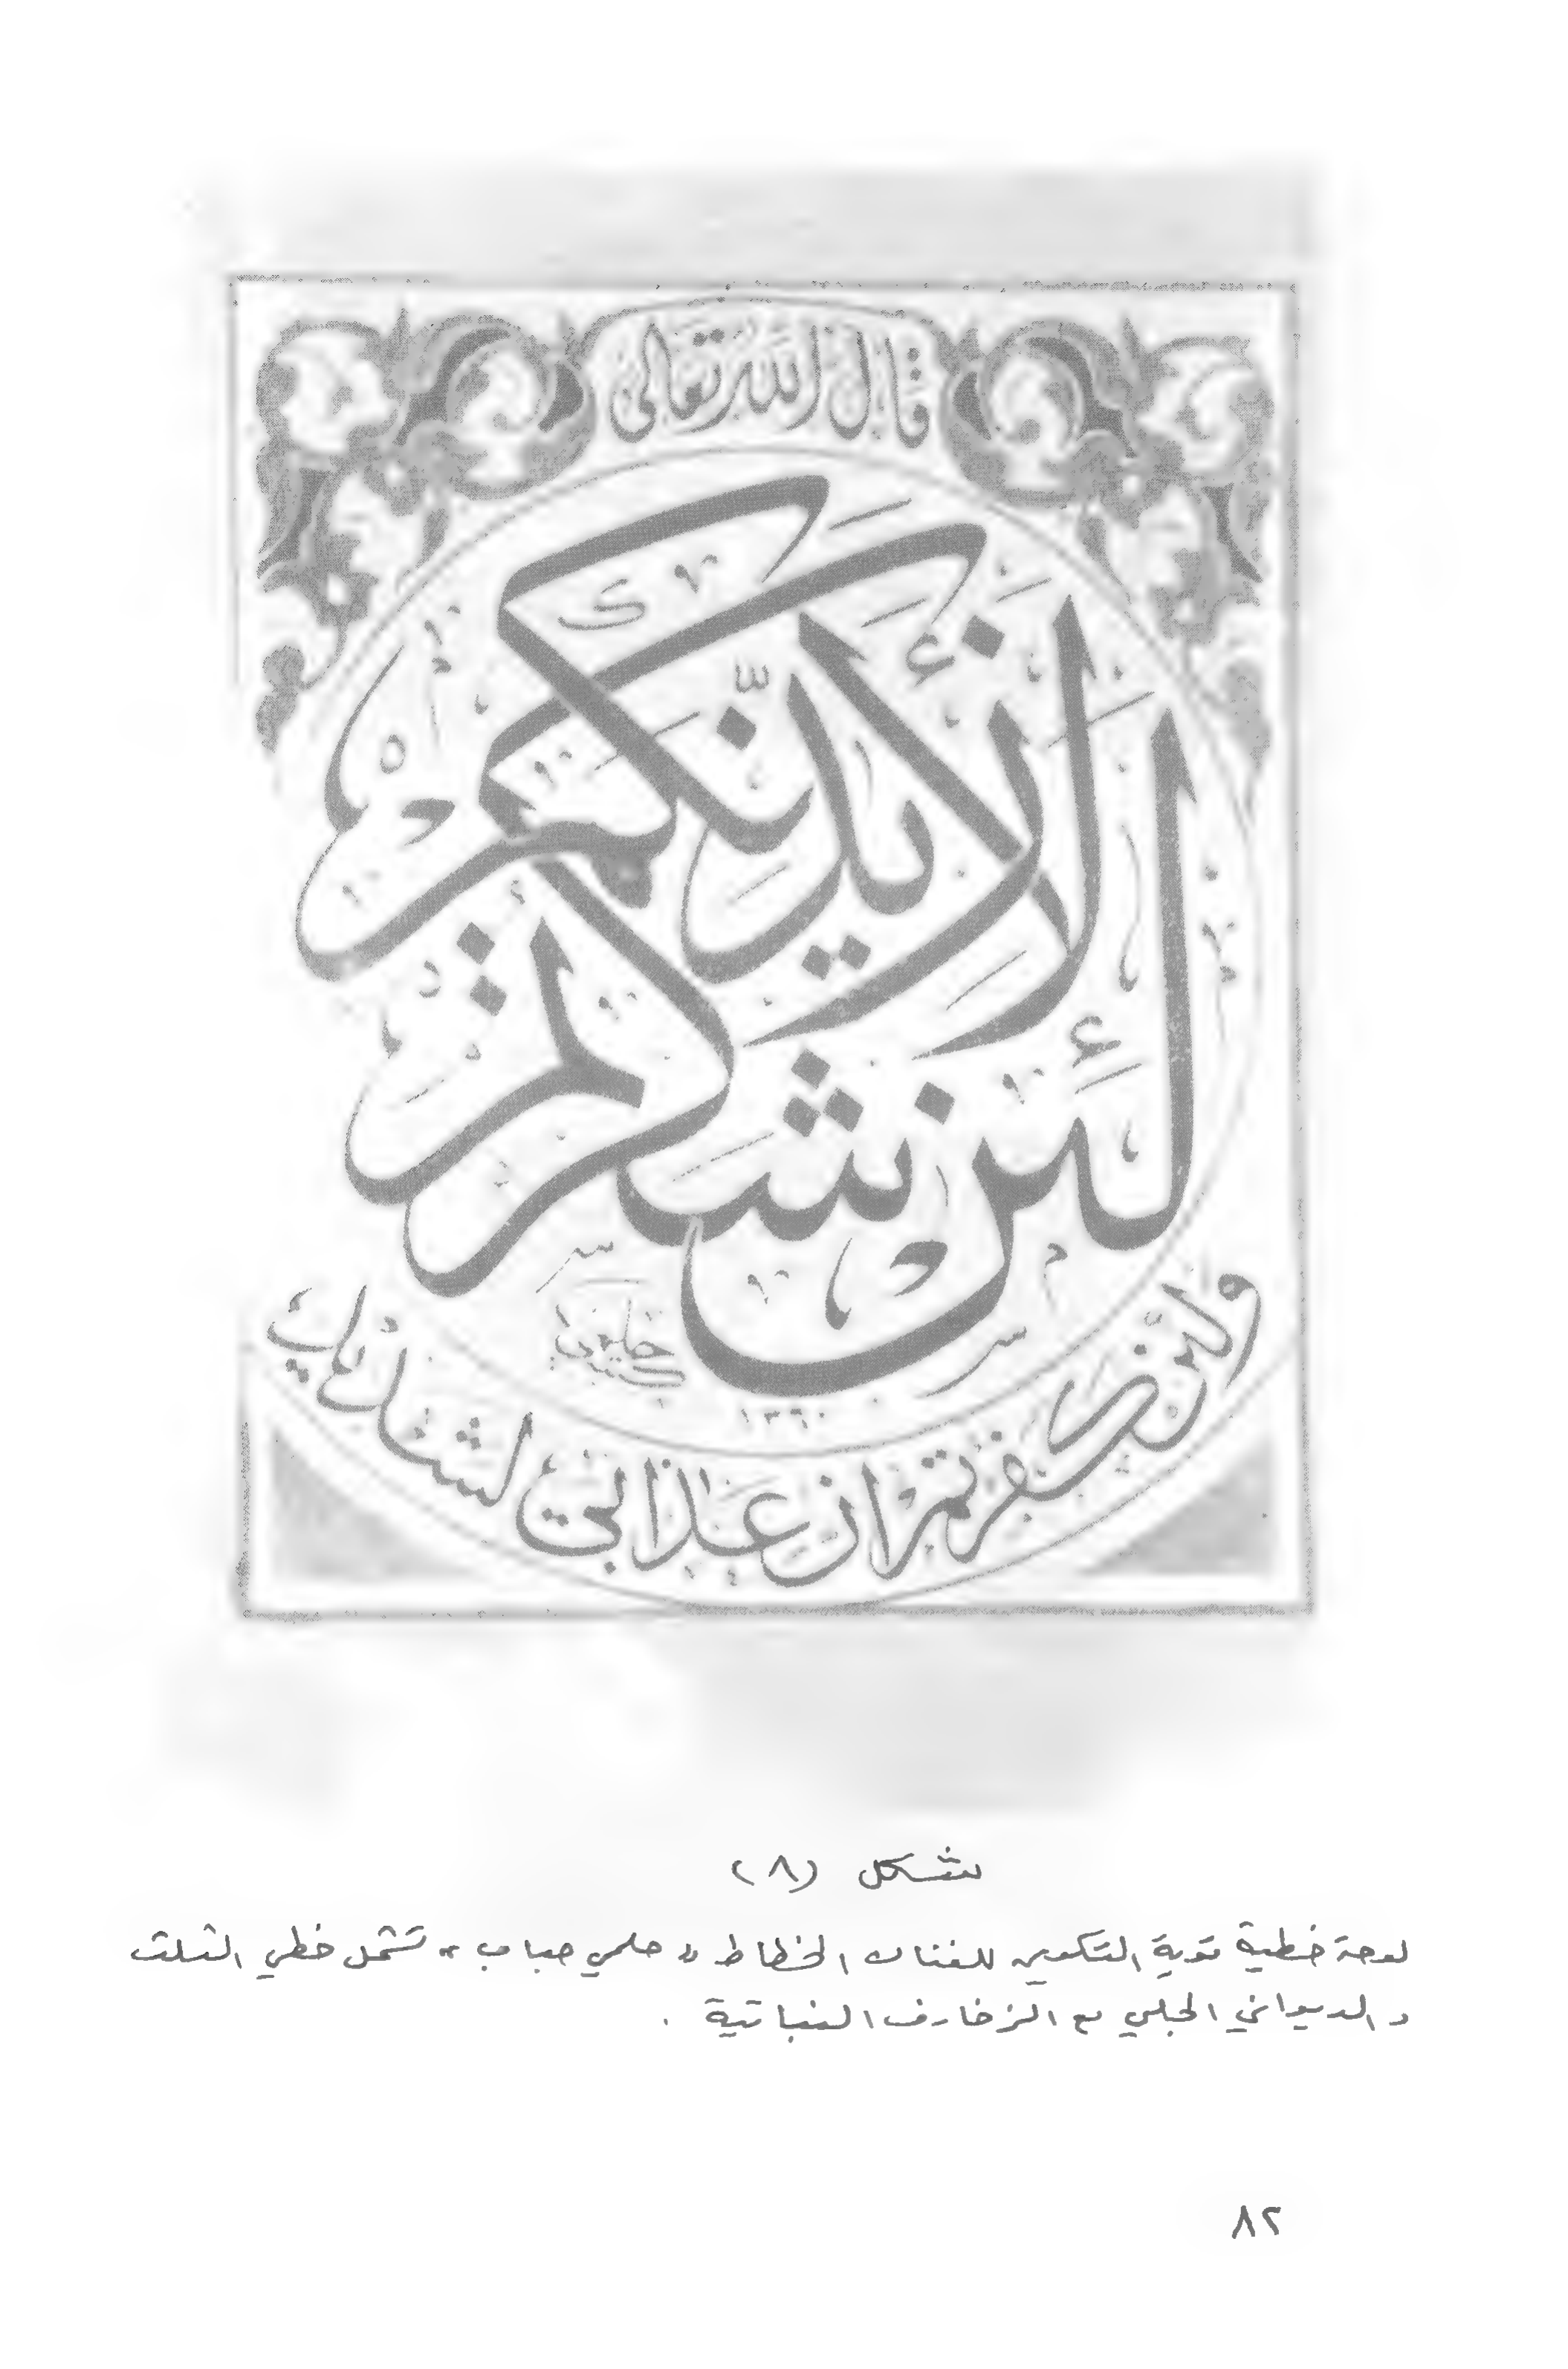 قال الله تعالى
لئن شكرتم لأزيدنكم
١٣٦٠
ولئن كفرتم ان عذابي لشديد
شكل (٨)
لوحة خطية قوية التكوين للفنان الخطاط « حلمي حباب » تشمل خطي الثلث
والديواني الجلي مع الزخارف النباتية .
٨٢